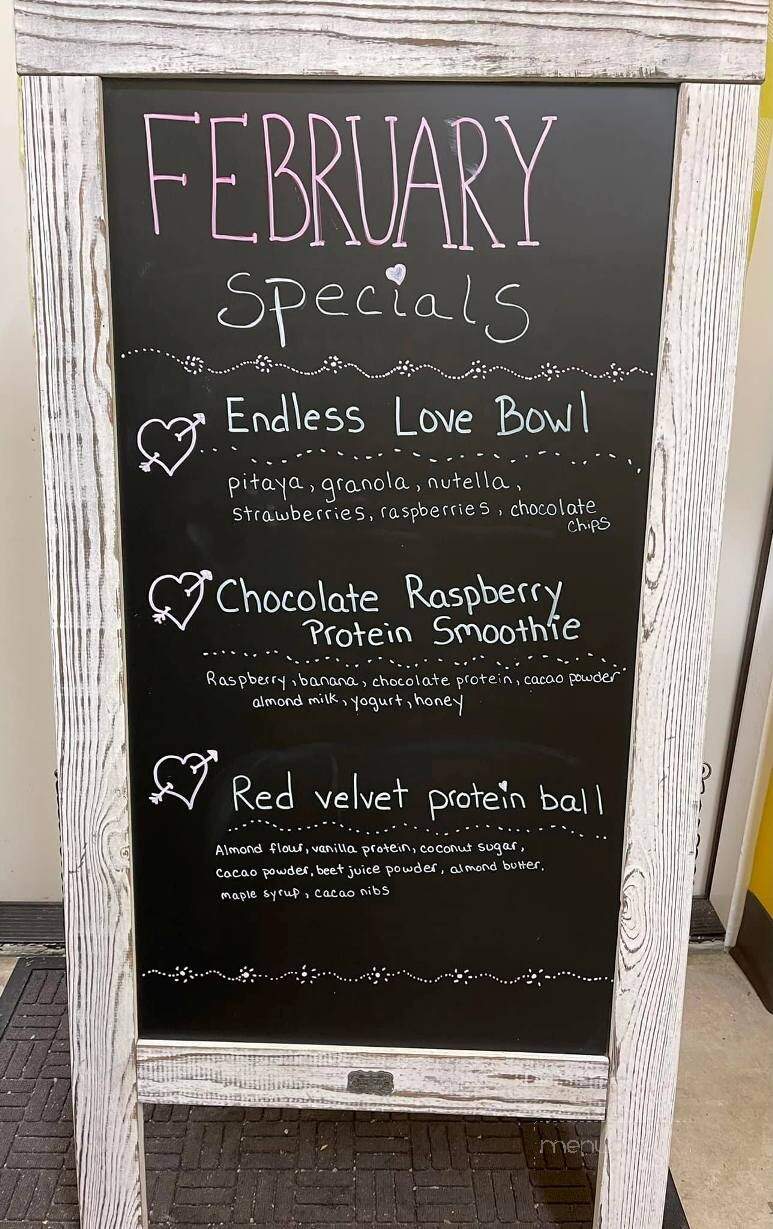 FEBRUARY
Specials
Endless Love Bowl
pitaya, granola, nutella,
strawberries, raspberries, chocolate
chips
Chocolate Raspberry
Protein Smoothie
Raspberry, banana, chocolate protein, cacao powder
almond milk, yogurt, honey
Red velvet protein ball
Almond flour, vanilla protein, coconut sugar,
cacao powder, beet juice powder, almond butter,
maple syrup, cacao nibs